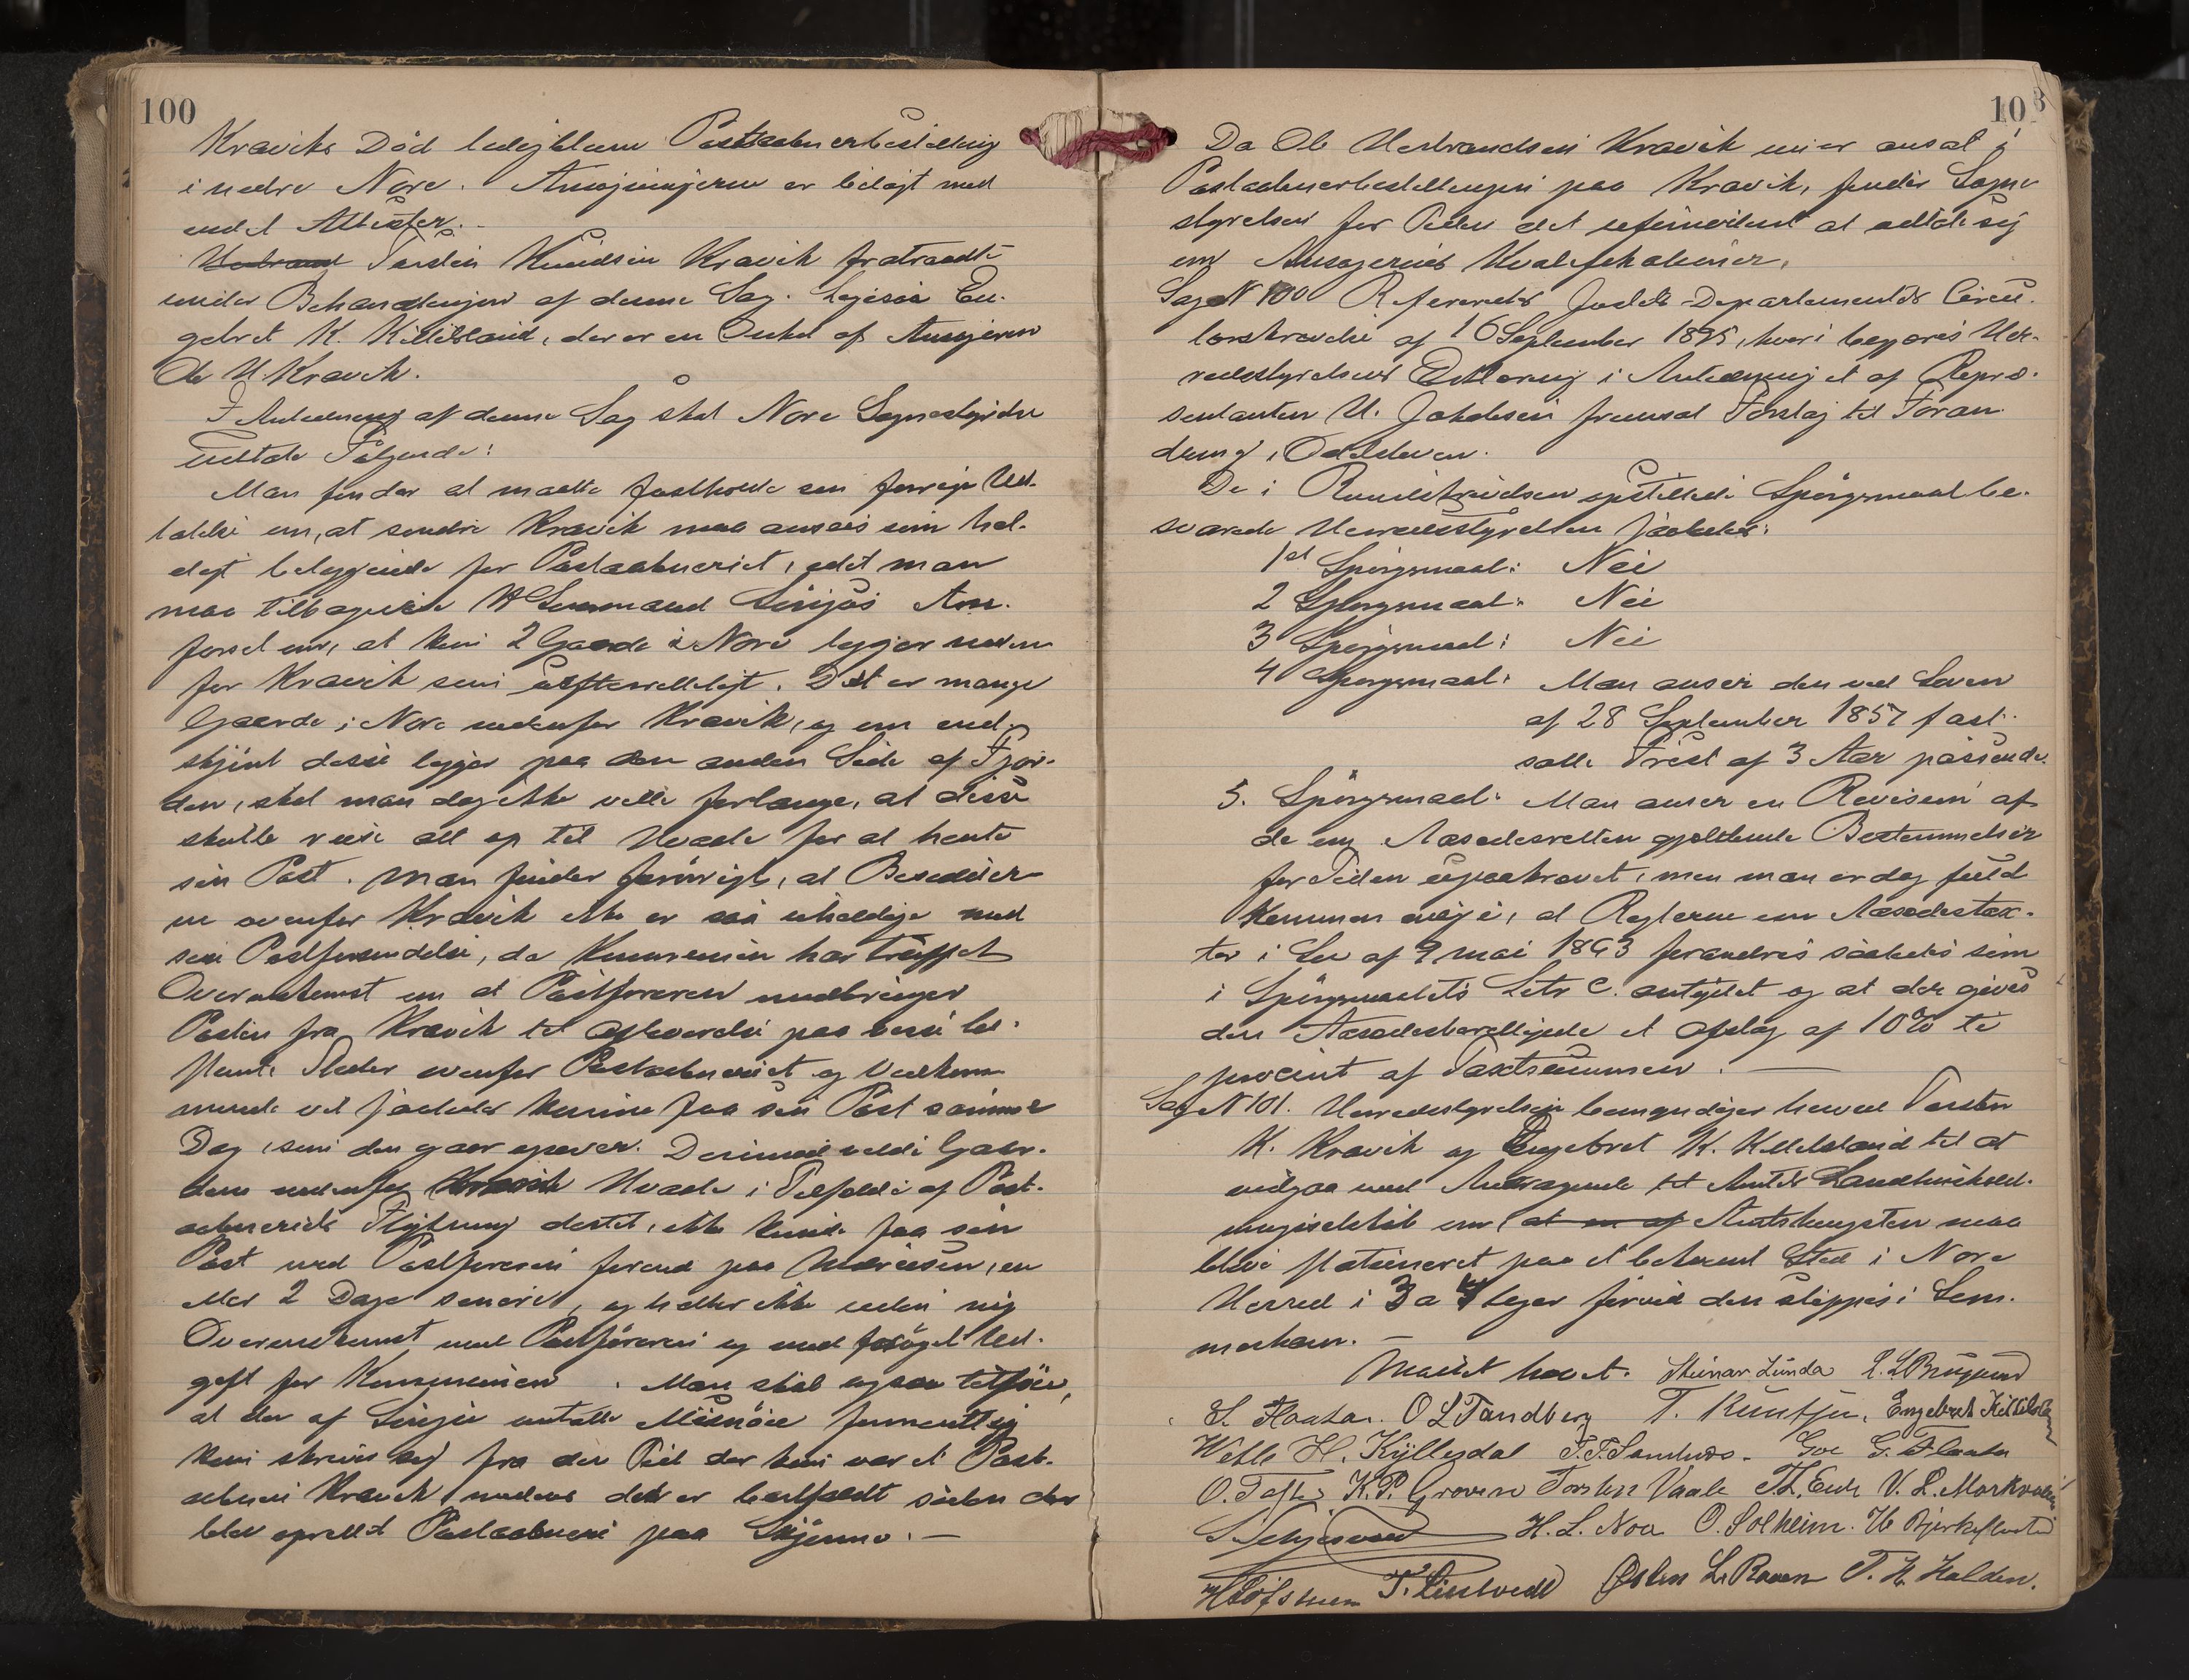 100
Kraviks Død ledigblevne Postaabnerbestilling
i nedre Nore. Ansøgningerne er bilagt med
endel Attester.
Torsten Knudsen Kravik fratraadte
under Behandlingen af denne Sag. Ligesaa En-
gebret K. Kittilsland, der er en Onkel af Ansøgeren
Ole H. Kravik.
I Anledning af denne Sag skal Nore Sognestyrelse
udtale Følgende:
Man finder at maatte fastholde sin forrige Ud-
talelse om, at søndre Kravik maa ansees som hel-
digt beliggende for Postaabneriet, idet man
maa tilbagevise Lensmand Anr-
førsel om, at kun 2 Gaarde i Nore ligger neden-
for Kravik som Det er mange
Gaarde i Nore nedenfor Kravik, og om end-
skjønt disse ligger paa den anden Side af Fjor-
den, skal man dog ikke ville forlange, at disse
skulle reise alt op til Hvaale for at hente
sin Post. Man finder forøvrigt, at Beboer-
ne ovenfor Kravik ikke er saa uheldige med
sin Postforsendelse, da Kommunen har truffet
Overenskomst om at Postføreren medbringer
Posten fra Kravik til paa visse be-
stemte Steder ovenfor Postaabneriet og Vedkom-
mende vil saaledes kunne faa sin Post samme
Dag, som den gaar opover. Derimod vilde Gaar-
dene nedenfor Kravik Hvaale i Tilfælde af Post-
aabneriets Flytning dertil, ikke kunde faa sin
Post med Postføreren førend paa en
eller 2 Dage senere, og heller ikke uden ny
Overenskomst med Postføreren og med forøget Ud-
gift for Kommunen. Man skal ogsaa tilføie,
at den af omtalte Misnøie formentlig
kun skrive sig fra den Tid der kun var et Post-
aabneri Kravik, medens det er bortfaldt siden der
blev oprettet Postaabneri paa Skjønne. —
10
Da Ole Herbrandsen Kravik nu er ansat i
Postaabnerbestillingen paa Kravik, finder Sogne-
styrelsen for Tiden det ufornødent at udtale sig
om Ansøgernes Kvalifikationer.
Sag N 100 Refereredes Justits-Departementets Circu-
lærskrivelse af 16 September 1895, hvori begjæres Her-
redsstyrelsens Erklæring i Anledning et af Repræ-
sentanten U. Jakobsen fremsat Forslag til Foran-
dring i Odelsloven.
De i Rundskrivelsen opstillede Spørgsmaal be-
svarede Herredsstyrelsen saaledes:
1ste Spørgsmaal: Nei
2 Spørgsmaal: Nei
3 Spørgsmaal: Nei
4 Spørgsmaal: Man anser den ved Loven
af 28 September 1857 fast-
satte Frist af 3 Aar passende.
5. Spørgsmaal: Man anser en Revision af
de om Aasædesretten gjældende Bestemmelser
for Tiden upaakrævet, men man er dog fuld
kommen enig i, at Reglerne om Aasædestax-
ter i Lov af 9 mai 1863 forandres saaledes som
i Spørgsmaalets Litr C. antydet og at der gives
den Aasædesberettigede et Afslag af 10% ti
procent af Taxtsummen. —
Sag N 101. Herredsstyrelsen bemyndiger herved Torsten
K. Kravik og Engebret K. Kittilsland til at
indgaa med Andragende til Amtets Landhushold-
ningsselskab om, at en af Amtshingsten maa
blive stationeret paa et bekvemt Sted i Nore
Herred i 3 a 4 Uger førend den slippes i Som-
merhavn. —
Mødet hævet. Steinar Lunda
S. Flaata. O L Tandberg T. Engebret Kittilsland
H. Kyllesdal G. Flaata
O. Tofte K.P. Groven Torsten Vaale V. L. Morkvold
H. L. Noa O. Solheim.
T. Lindvedt Østen L. Raaen T. H. Halden.